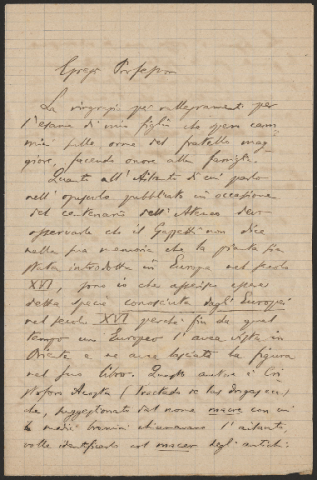 Egregio Professore
La ringrazio pei rallegramenti per
l'esame di mio figlio che spero cam-
mini sulle orme del fratello mag-
giore, facendo onore alla famiglia.
Quanto all'Ailanto di cui parlo
nell'opuscolo pubblicato in occasione
del centenario dell'Ateneo devo
osservarle che il Goppelli non dice
nella sua memoria che la pianta sia
stata introdotta in Europa nel secolo
XVI, sono io che asserisco essere
detta specie conosciuta dagli Europei
nel secolo XVI perchè fin da quel
tempo un Europeo l'avea vista in
Oriente e ne avea lasciato la figura
nel suo libro. Questo autore è Cri
stoforo Acosta (Tractado de las drogas ecc)
che, suggestionato dal nome macre con cui
i medici bramini chiamavano l'ailanto,
volle identificarlo col macer degli antichi.